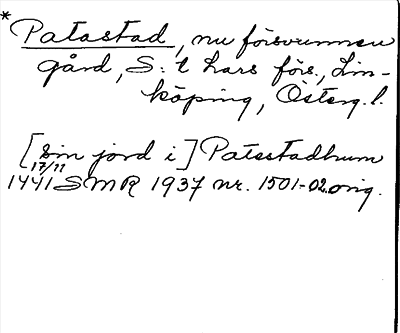 * Patastad, nu försvunnen
gård, S:t Lars förs., Lin-
köping, Österg. l.
[sin jord i] Patestadhum
17/11
1441 SMR 1937 nr. 1501-02. orig.